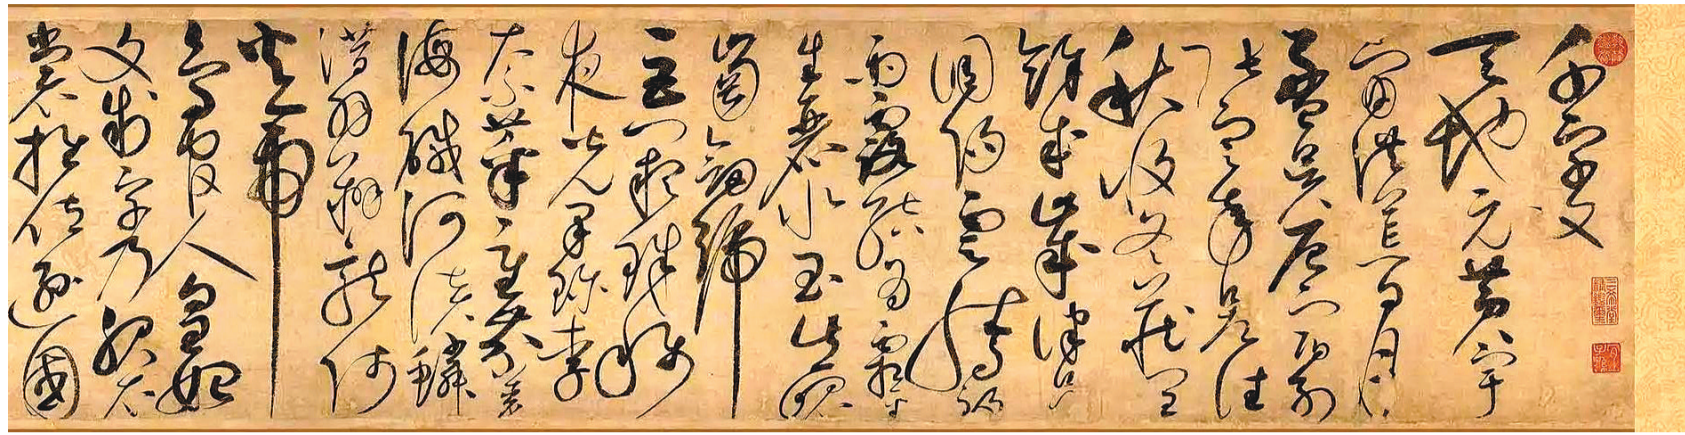 乾隆鑑賞
三希堂精鑑璽
宜子孫
千字文
天地元黃宇
宙洪荒日月
盈昃辰宿列
張寒來暑往
秋收冬藏閏
餘成歲律呂
調陽雲騰致
雨露結為霜金
生麗水玉出崑
崗劍號
巨闕珠稱
夜光果珍李
柰菜重芥薑
海鹹河淡鱗
潛羽翔龍師
火帝
鳥官人皇始
文制字乃服衣
裳推位遜國